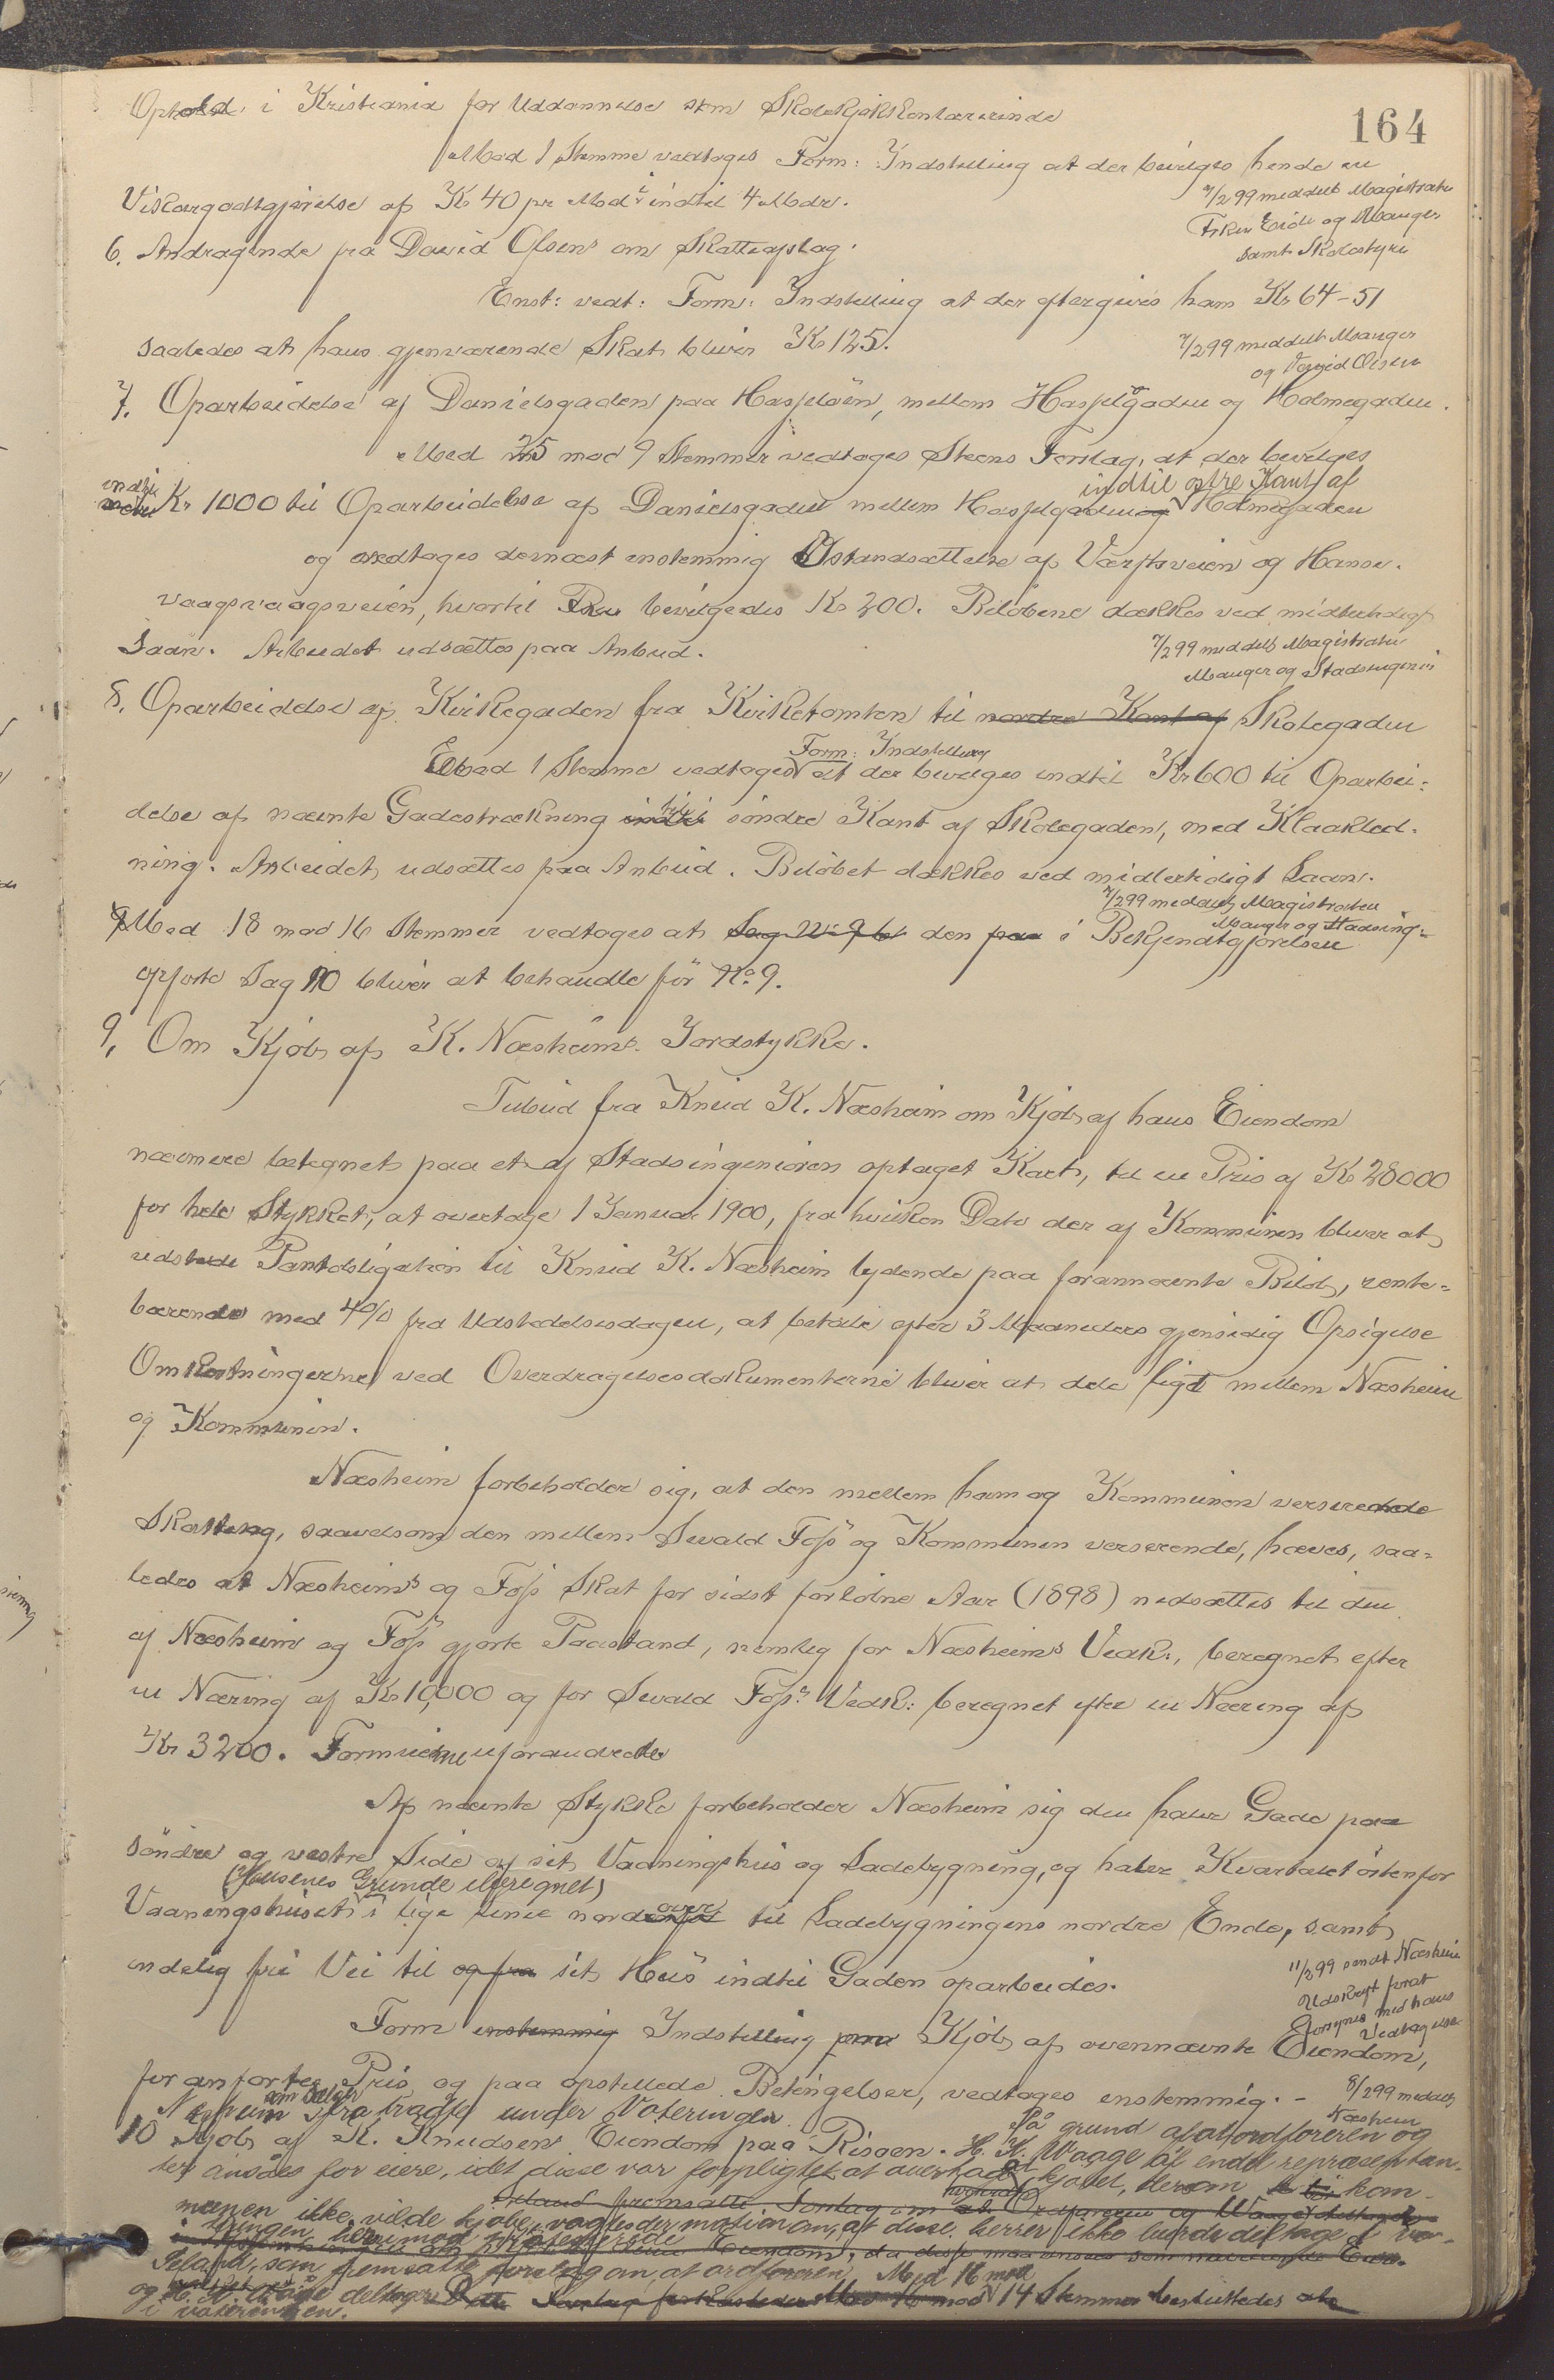 164
Ophold i Kristiania for Uddannelse som Skolekjøkkenlærerinde
Mod 1 Stemme vedtoges Form: Indstilling at der bevilges hende en
Vikargodtgjørelse af Kr 40 pr Md i indtil 4 Mdr.
7/2 99 meddelt Magistraten
Frken Eide og Mauger
samt Skolestyre
6. Andragende fra David Olsen om Skatteafslag.
Enst: vedt: Form: Indstilling at der eftergives ham Kr 64-51
saaledes at hans gjenværende Skat bliver Kr 125.
7/2 99 meddelt Mauger
og David Olsen
7. Oparbeidelse af Danielsgaden paa Hasseløen, mellem Hasselgaden og Holmegaden.
Med 25 mod 9 Stemmer vedtoges Steens Forslag, at der bevilges
indtil Kr 1000 til Oparbeidelse af Danielsgaden mellem Hasselgaden og indtil østre Kant af Holmegaden
og vedtages dernæst enstemmig Istandsættelse af Værftsveien og Hanse-
vaagsveien, hvortil bevilgedes Kr 200. Beløbene dækkes ved midlertidigt
Laan. Arbeidet udsættes paa Anbud.
7/2 99 meddelt Magistraten
Mauger og Stadsingeniør
8. Oparbeidelse af Kirkegaden fra Kirketomten til nordre Kant af Skolegaden
Mod 1 Stemme vedtoges Form: Indstilling at der bevilges indtil Kr 600 til Oparbei-
delse af nævnte Gadestrækning til søndre Kant af Skolegaden, med Kloakled-
ning. Arbeidet udsættes paa Anbud. Beløbet dækkes ved midlertidigt Laan.
7/2 99 meddelt Magistraten
Mauger og Stadsing-
Med 18 mod 16 Stemmer vedtoges at den paa i Bekjendtgjørelsen
opførte Sag 10 bliver at behandle før No 9.
9. Om Kjøb af K. Næsheims Jordstykke.
Tilbud fra Knud K. Næsheim om Kjøb af hans Eiendom
nærmere betegnet paa et af Stadsingeniøren optaget Kart, til en Pris af Kr 28000
for hele Stykket, at overtage 1 Januar 1900, fra hvilken Dato der af Kommunen bliver at
udstede Pantobligation til Knud K. Næsheim lydende paa forannævnte Beløb, rente-
bærende med 4% fra Udstedelsesdagen, at betale efter 3 Maaneders gjensidig Opsigelse
Omkostningerne ved Overdragelsesdokumenterne bliver at dele ligt mellem Næsheim
og Kommunen.
Næsheim forbeholder sig, at den mellem ham og Kommunen verserende
Skattesag, saavelsom den mellem Sevald Foss og Kommunen verserende, hæves, saa-
ledes at Næsheims og Foss Skat for sidst forløbne Aar (1898) nedsættes til den
af Næsheim og Foss gjorte Paastand, nemlig for Næsheims Vedk:, beregnet efter
en Næring af Kr 10,000 og for Sevald Foss's Vedk: beregnet efter en Næring af
Kr 3200. Formuerne uforandrede
Af nævnte Stykke forbeholder Næsheim sig den halve Gade paa
søndre og vestre Side af sit Vaaningshus og Ladebygning, og halve Kvartalet østenfor
(Husenes Grunde iberegnet)
Vaaningshuset i lige Linie nordover til Ladebygningens nordre Ende, samt
endelig fri Vei til og fra sit Hus indtil Gaden oparbeides.
11/2 99 sendt Næsheim
Udskrift forat
forsynes med hans
Vedtagelse
Form enstemmig Indstilling paa Kjøb af ovennævnte Eiendom,
for anførte Pris og paa opstillede Betingelser, vedtages enstemmig. -
8/2 99 meddelt
Næsheim
Næsheim fratraadte under Voteringen.
10 Kjøb af K. Knudsens Eiendom paa Risøen. På grund af at ordføreren og
H. H. Waage til endel repræsentan-
ter ansåes for eiere, idet disse var forpligtet at overtage kjøbet, dersom kom-
munen ikke vilde kjøbe, vagtes der motion om, at disse herrer ikke burde deltage i vo-
teringen. herimod protesterede
Øeland, som fremsatte forslag om, at ordføreren
og H. H. Waage deltager Med 16 mod 14 Stemmer besluttedes
i voteringen.